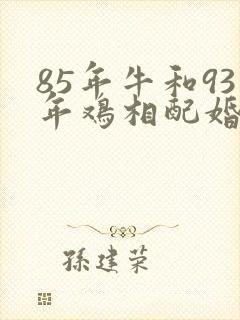 85年牛和93
年鸡相配婚
孫建荣